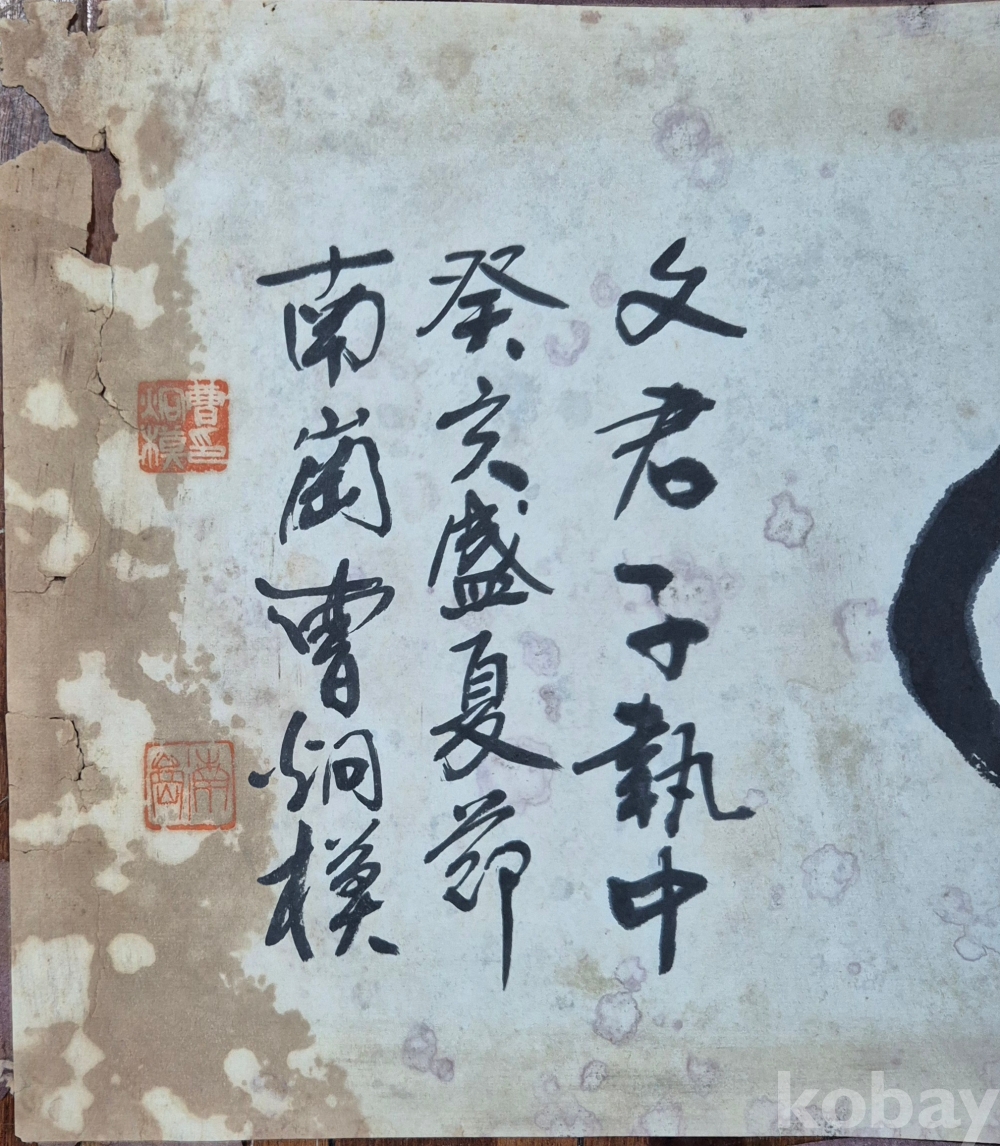 文君子執中
癸亥盛夏節
南崗曹烱模
曹印
烱模
南崗
kobay